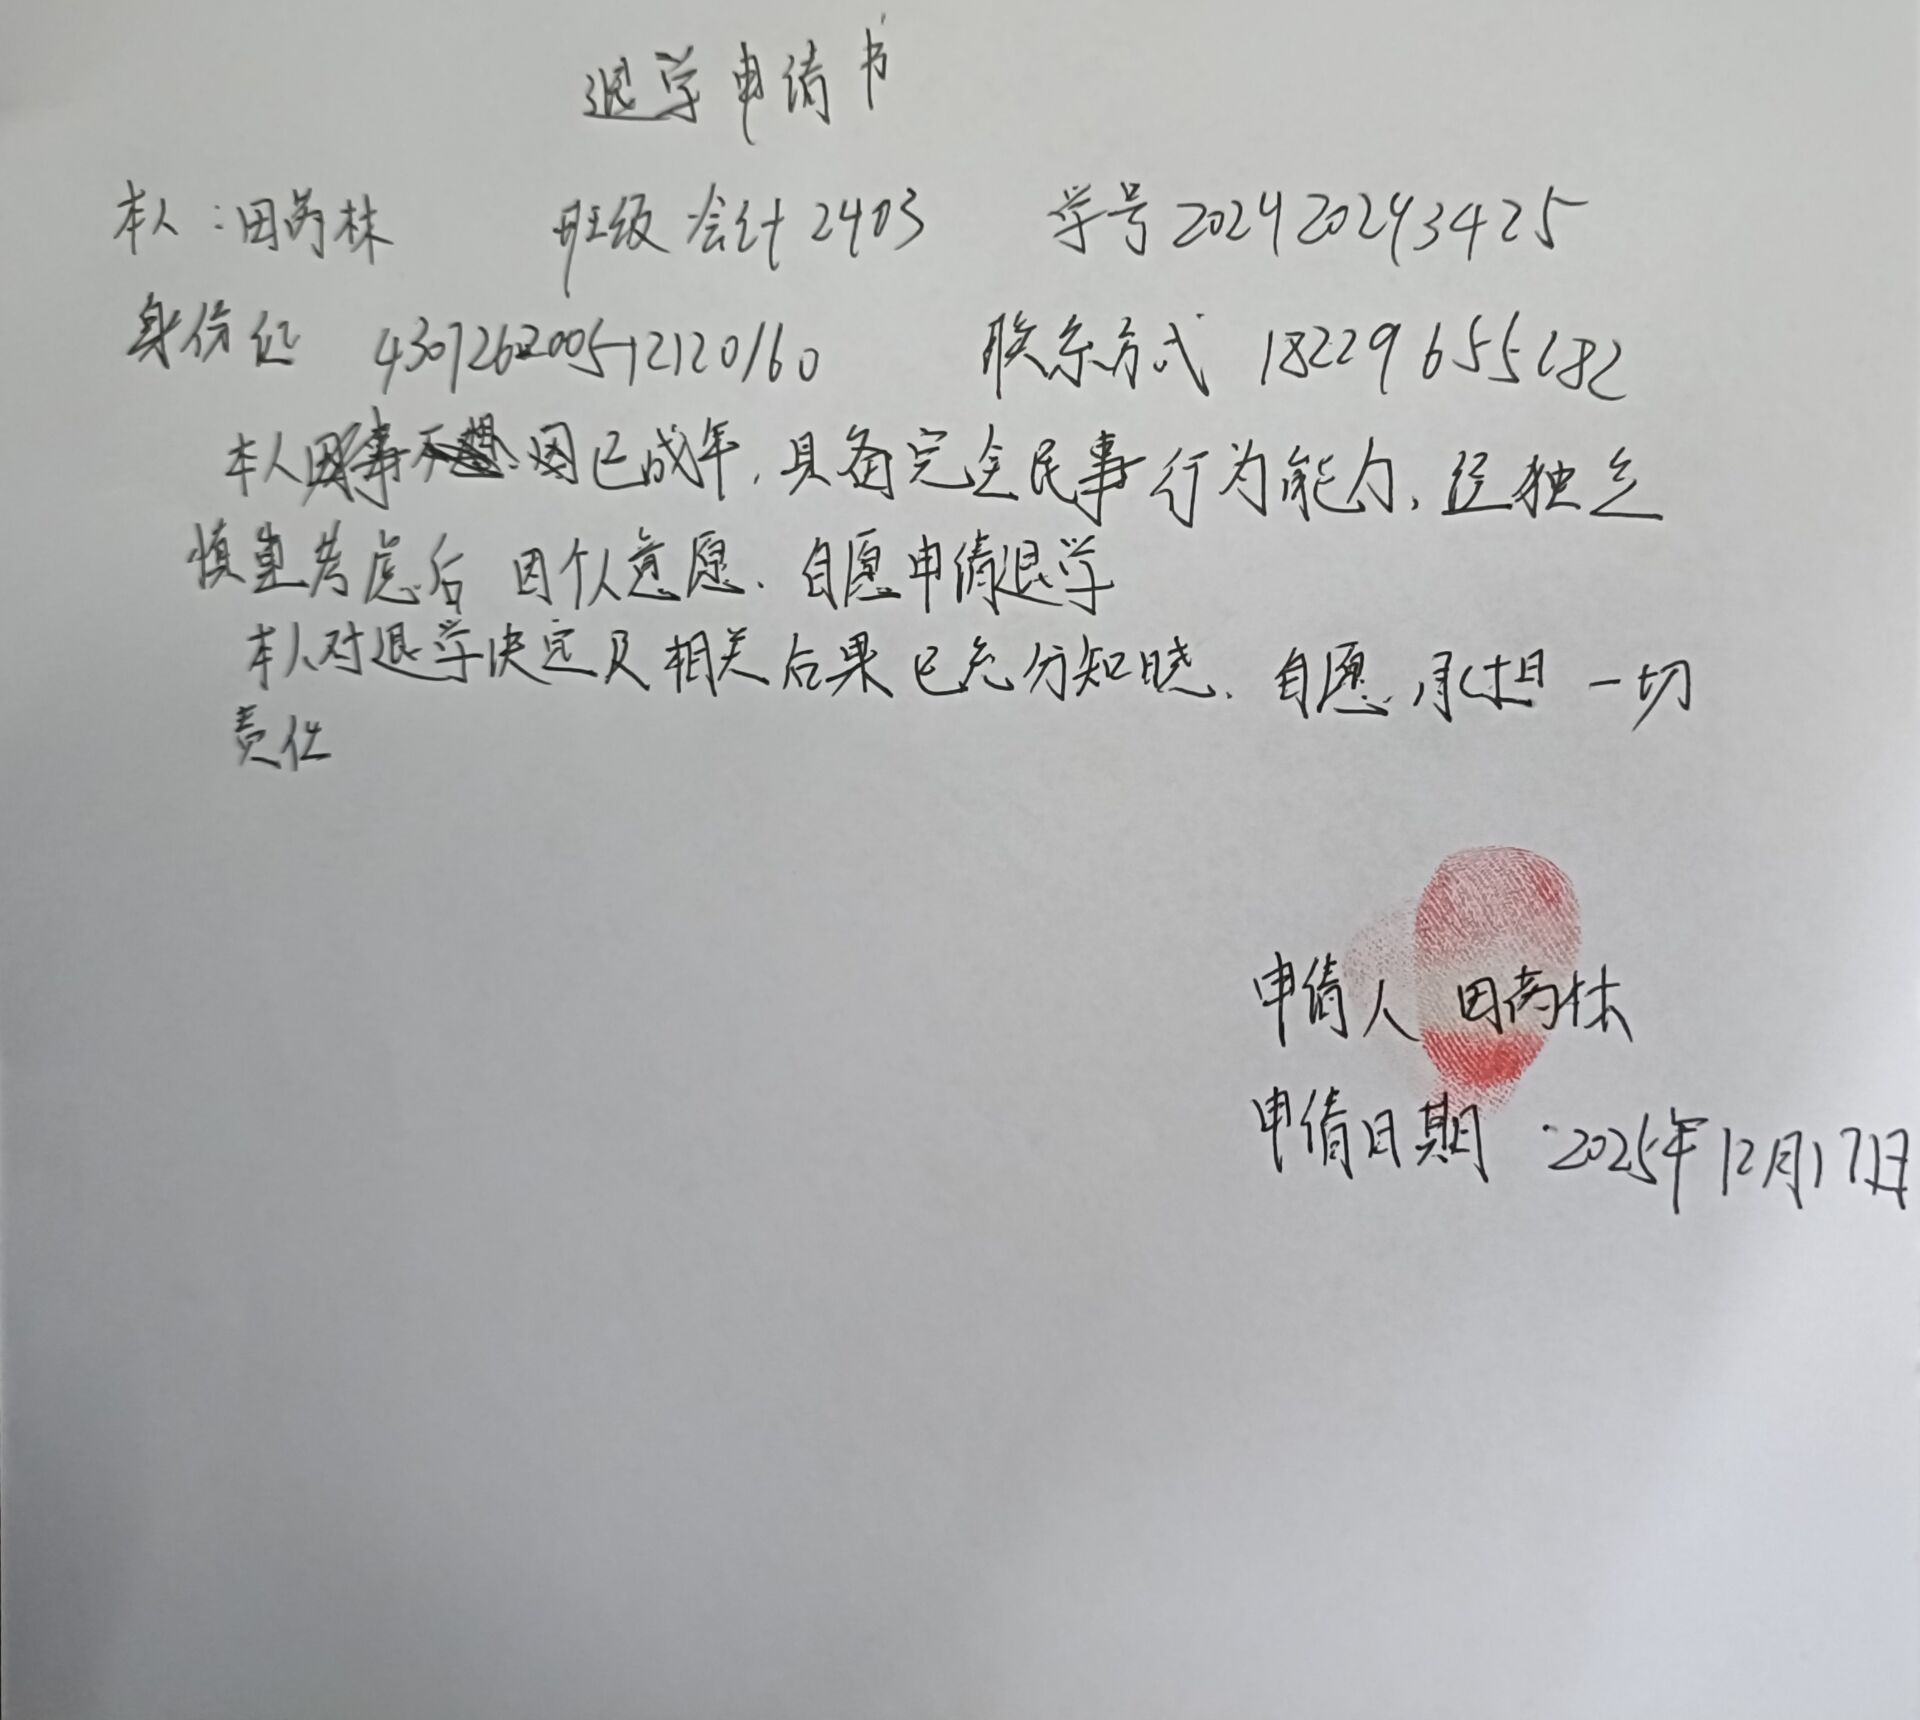 退学申请书
本人：田芮林 班级 会计2403 学号 202420243425
身份证 430726200512120160 联系方式 18229655682
本人因事不想 因已成年，具备完全民事行为能力，经独立
慎重考虑后 因个人意愿，自愿申请退学
本人对退学决定及相关后果已充分知晓，自愿承担一切
责任
申请人 田芮林
申请日期 2025年12月17日